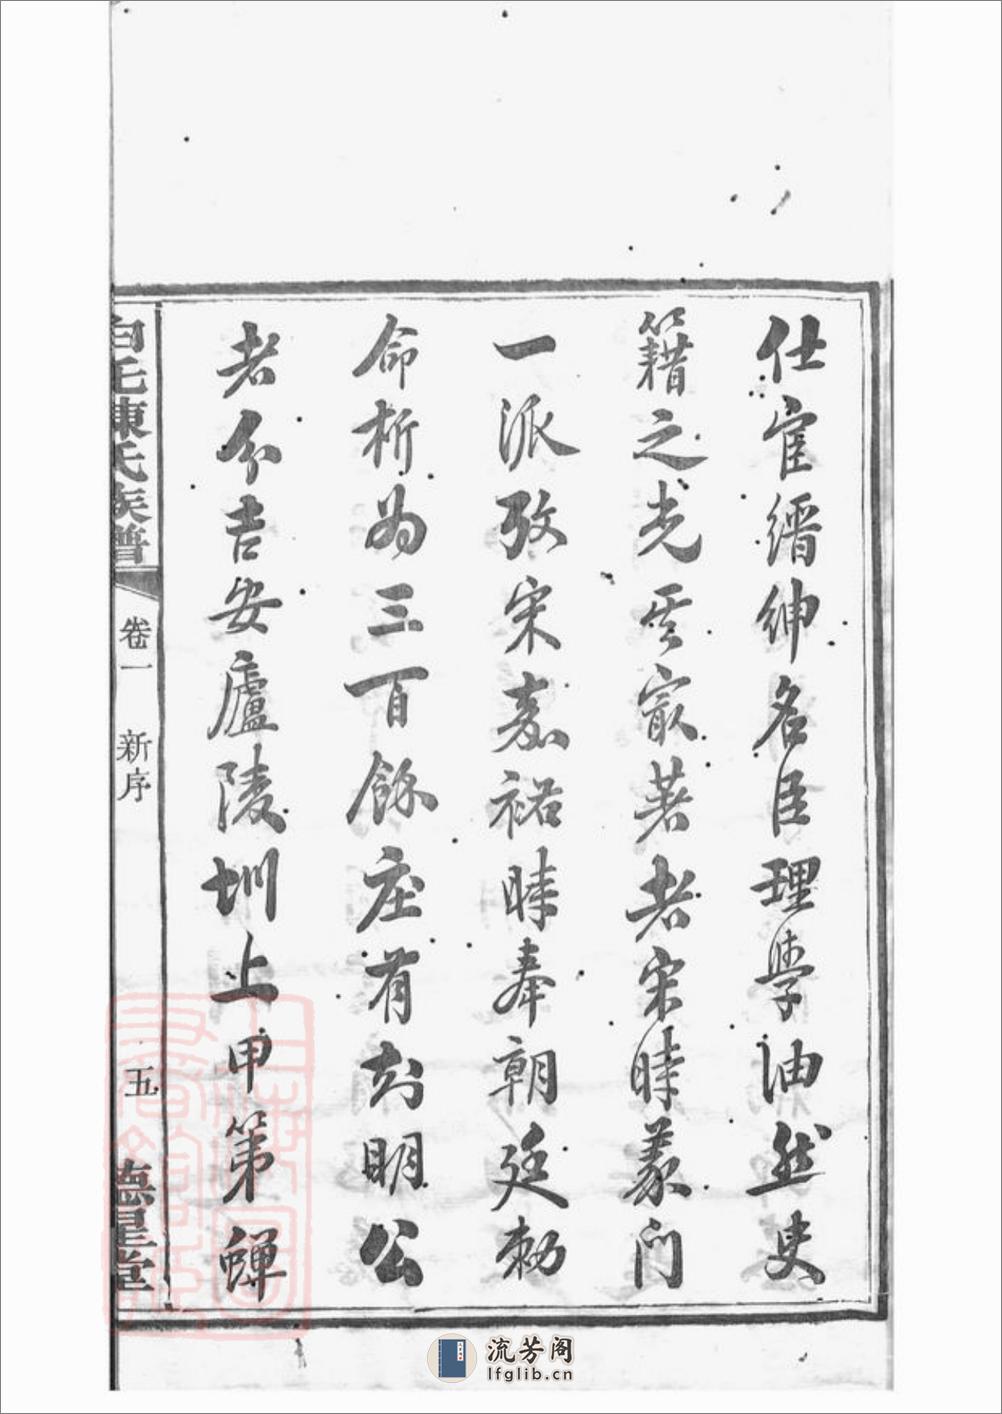 仕宦縉紳名臣理學油然史
籍之光其最著者宋時義門
一派攷宋嘉祐時奉朝廷勅
命析為三百餘庄有志明公
者分吉安廬陵圳上甲第蟬
白毛陳氏族譜
卷一 新序
五
德星堂
流芳阁
lfglib.cn